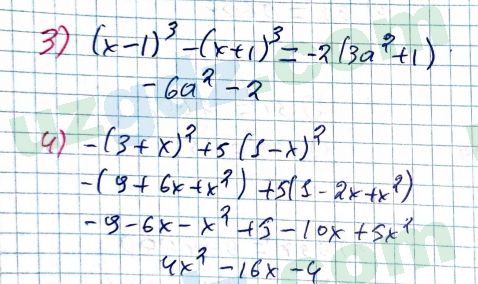 3) (x-1)³-(x+1)³=-2(3a²+1)
-6a²-2
4) -(3+x)²+5(1-x)²
-(9+6x+x²)+5(1-2x+x²)
-9-6x-x²+5-10x+5x²
4x²-16x-4